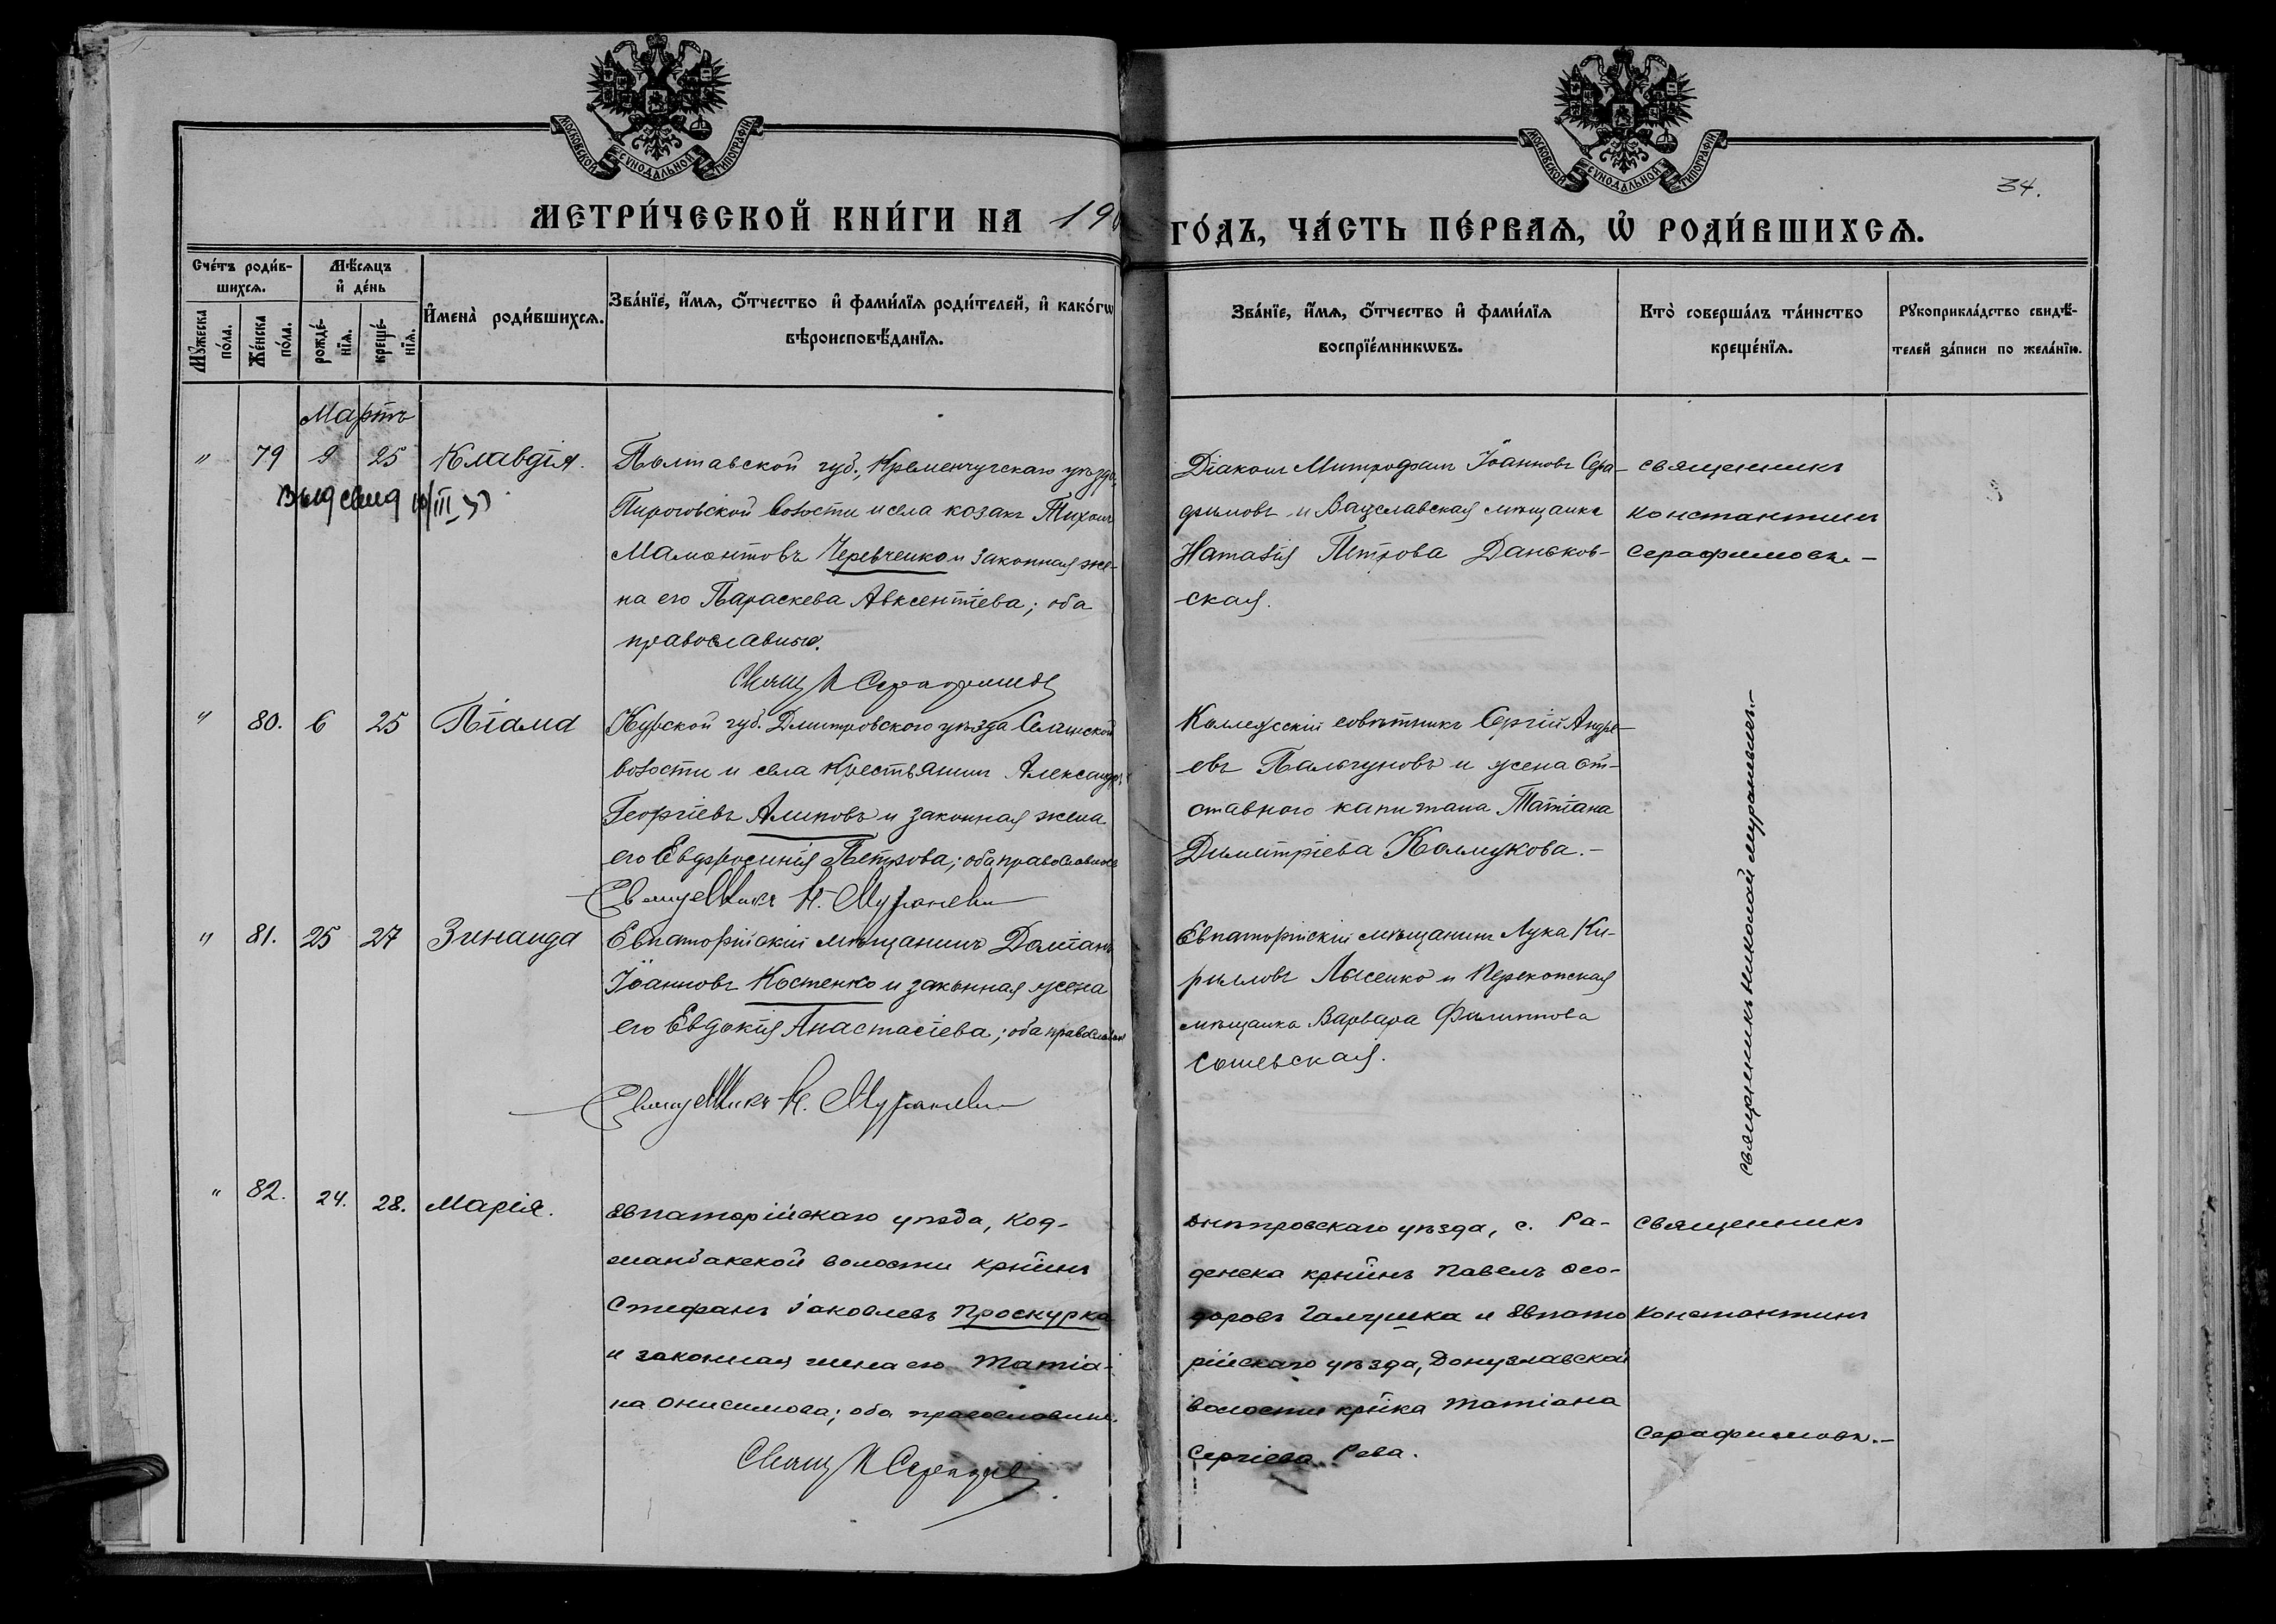 МОСКОВСКОЙ СѴНОДАЛЬНОЙ ТИПОГРАФІИ
МОСКОВСКОЙ СѴНОДАЛЬНОЙ ТИПОГРАФІИ
34.
МЕТРИ́ЧЕСКОЙ КНИ́ГИ НА 19
ГО́ДЪ, ЧА́СТЬ ПЕ́РВАѦ, Ѡ҆ РОДИ́ВШИХСѦ.
Сче́тъ роди́в-
шихсѧ.
Мꙋ́жеска по́ла.
Же́нска по́ла.
Мѣ́сѧцъ
и҆ де́нь
рожде́-
нїѧ.
креще́-
нїѧ.
И҆мена̀ роди́вшихсѧ.
Зва́нїе, и҆́мѧ, ѻ҆́тчество и҆ фами́лїѧ роди́телей, и҆ како́гѡ
вѣроисповѣ́данїѧ.
Зва́нїе, и҆́мѧ, ѻ҆́тчество и҆ фами́лїѧ
воспрїе́мникѡвъ.
Кто̀ соверша́лъ та́инство
креще́нїѧ.
Рꙋкоприкла́дство свидѣ́-
телей за́писи по жела́нїю.
Мартъ
" 79 9 25 Клавдія.
Выд свид 10/III
Полтавской губ., Кременчугскаго уѣзда,
Пироговской волости и села козакъ Тихонъ
Мамонтовъ Черевченко и законная же-
на его Параскева Авксентіева; оба
православные.
Свящ К Серафимов
Діаконъ Митрофанъ Іоанновъ Сера-
фимовъ и мѣщанка
Наталія Петрова Даньков-
ская.
священникъ
Константинъ
Серафимовъ.—
" 80. 6 25 Піама
Курской губ. Дмитровского уѣзда
волости и села крестьянинъ Александръ
Георгіевъ Алиповъ и законная жена
его Евфросинія Петрова; оба православные
Священникъ Н. Мураневич
Коллежскій совѣтникъ Сергій Андре-
евъ Пальчуновъ и жена от-
ставного капитана Татіана
Димитріева Колмукова.—
священникъ Николай Мураневич.—
" 81. 25 27 Зинаида
Евпаторійскій мѣщанинъ Доміанъ
Іоанновъ Костенко и законная жена
его Евдокія Анастасіева; оба православн
Священникъ Н. Мураневич
Евпаторійскій мѣщанинъ Лука Ки-
рилловъ Лысенко и Перекопская
мѣщанка Варвара Филиппова
Сошевская.
" 82. 24. 28. Марія.
Евпаторійскаго уѣзда, Код-
жамбакской волости крнинъ
Стефанъ Іаковлевъ Проскурка
и законная жена его Татіа-
на Онисимова; оба православные.
Свящ К Серафимов
Днѣпровскаго уѣзда, с. Ра-
денска крнинъ Павелъ Ѳео-
доровъ Галушка и Евпато
рійскаго уѣзда, Донузлавской
волости крнка Татіана
Сергіева Рева.
Священникъ
Константинъ
Серафимовъ.—